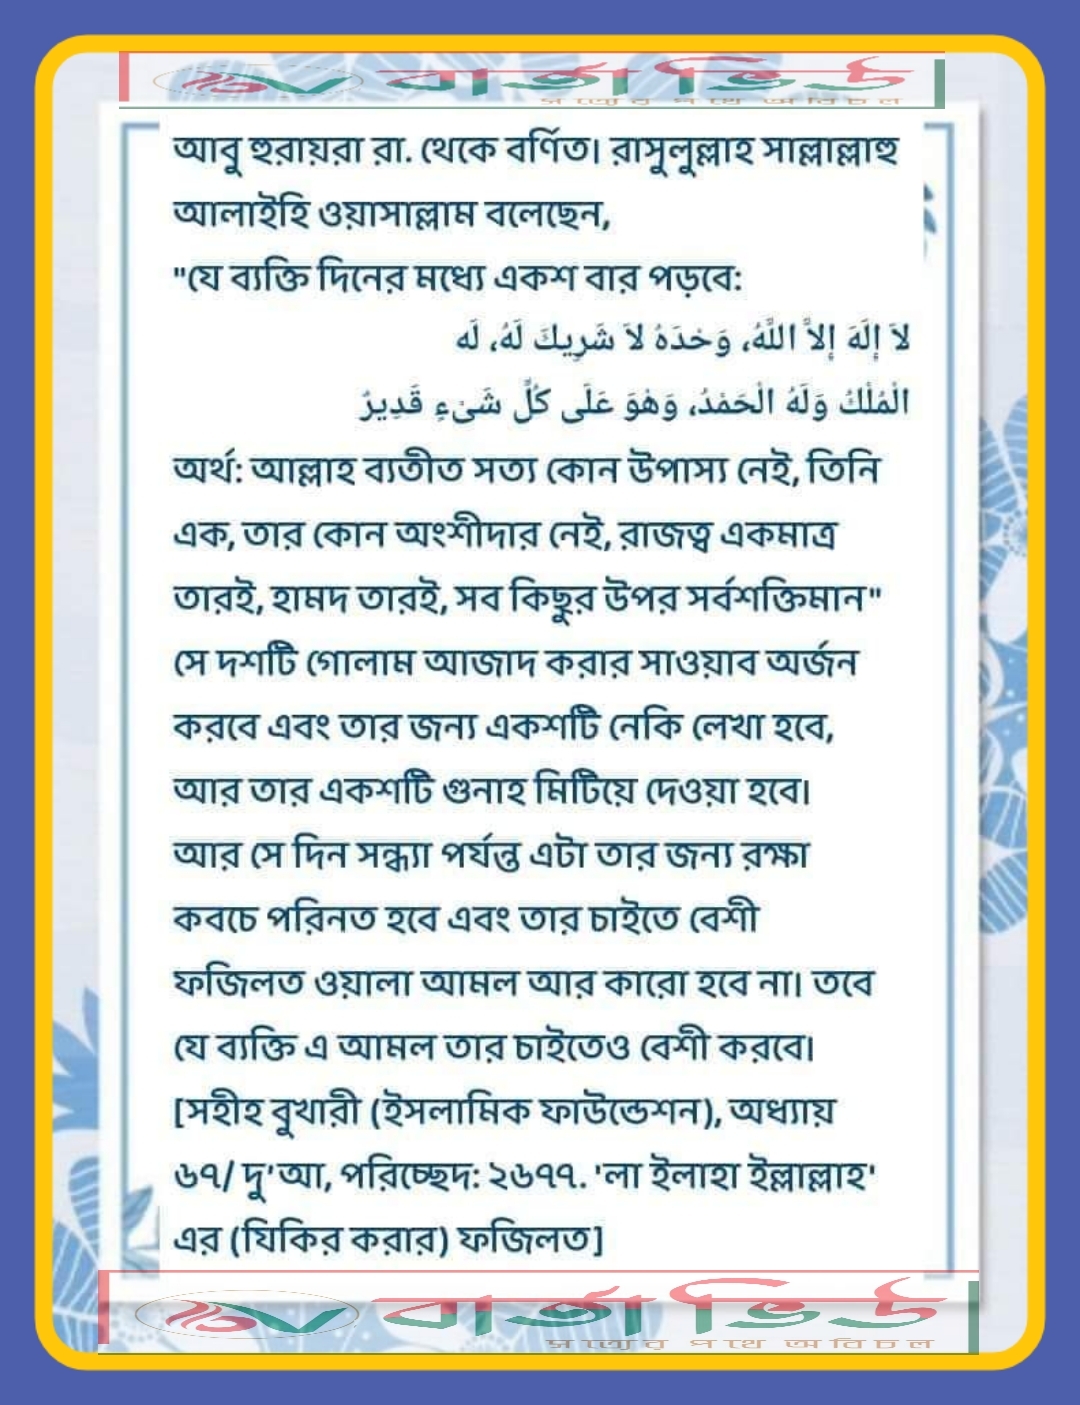 বার্তা ভিউ
সত্যের পথে অবিচল
আবু হুরায়রা রা. থেকে বর্ণিত। রাসুলুল্লাহ সাল্লাল্লাহু
আলাইহি ওয়াসাল্লাম বলেছেন,
"যে ব্যক্তি দিনের মধ্যে একশ বার পড়বে:
لاَ إِلَهَ إِلاَّ اللَّهُ، وَحْدَهُ لاَ شَرِيكَ لَهُ، لَه
الْمُلْكُ وَلَهُ الْحَمْدُ، وَهْوَ عَلَى كُلِّ شَىْءٍ قَدِيرٌ
অর্থ: আল্লাহ ব্যতীত সত্য কোন উপাস্য নেই, তিনি
এক, তার কোন অংশীদার নেই, রাজত্ব একমাত্র
তারই, হামদ তারই, সব কিছুর উপর সর্বশক্তিমান"
সে দশটি গোলাম আজাদ করার সাওয়াব অর্জন
করবে এবং তার জন্য একশটি নেকি লেখা হবে,
আর তার একশটি গুনাহ মিটিয়ে দেওয়া হবে।
আর সে দিন সন্ধ্যা পর্যন্ত এটা তার জন্য রক্ষা
কবচে পরিনত হবে এবং তার চাইতে বেশী
ফজিলত ওয়ালা আমল আর কারো হবে না। তবে
যে ব্যক্তি এ আমল তার চাইতেও বেশী করবে।
[সহীহ বুখারী (ইসলামিক ফাউন্ডেশন), অধ্যায়
৬৭/ দু'আ, পরিচ্ছেদ: ২৬৭৭. 'লা ইলাহা ইল্লাল্লাহ'
এর (যিকির করার) ফজিলত]
বার্তা ভিউ
সত্যের পথে অবিচল